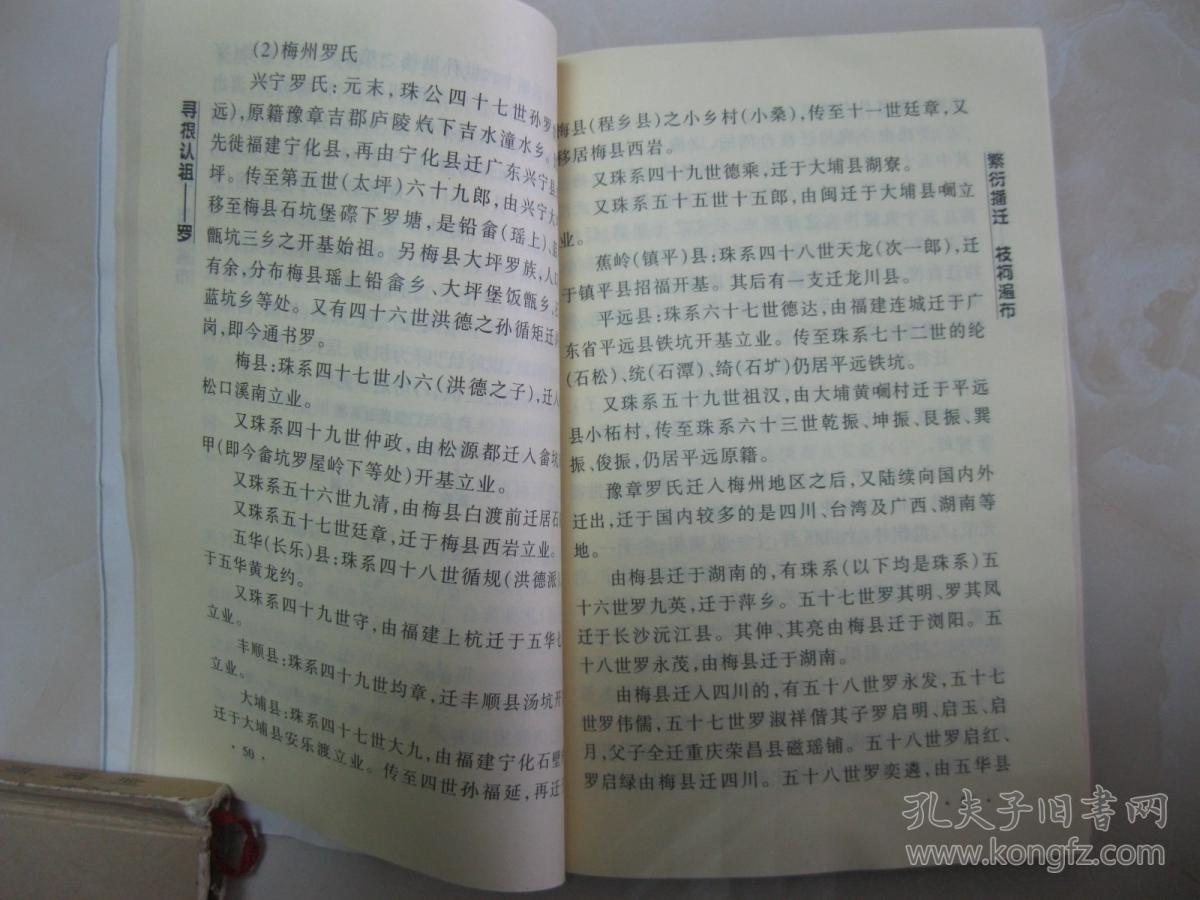 寻根认祖——罗
(2)梅州罗氏
兴宁罗氏:元末,珠公四十七世孙罗
远),原籍豫章吉郡庐陵炁下吉水潼水乡。
先徙福建宁化县,再由宁化县迁广东兴宁县
坪。传至第五世(太坪)六十九郎,由兴宁大
移至梅县石坑堡磜下罗塘,是铅畲(瑶上)、
甑坑三乡之开基始祖。另梅县大坪罗族,人口
有余,分布梅县瑶上铅畲乡、大坪堡饭甑乡、
蓝坑乡等处。又有四十六世洪德之孙循矩迁
岗,即今通书罗。
梅县:珠系四十七世小六(洪德之子),迁入
松口溪南立业。
又珠系四十九世仲政,由松源都迁入畲坑
甲(即今畲坑罗屋岭下等处)开基立业。
又珠系五十六世九清,由梅县白渡前迁居石
又珠系五十七世廷章,迁于梅县西岩立业。
五华(长乐)县:珠系四十八世循规(洪德派
于五华黄龙约。
又珠系四十九世守,由福建上杭迁于五华
立业。
丰顺县:珠系四十九世均章,迁丰顺县汤坑开
立业。
大埔县:珠系四十七世大九,由福建宁化石壁
迁于大埔县安乐渡立业。传至四世孙福延,再迁
·50·
繁衍播迁 枝祠遍布
梅县(程乡县)之小乡村(小桑),传至十一世廷章,又
移居梅县西岩。
又珠系四十九世德乘,迁于大埔县湖寮。
又珠系五十五世十五郎,由闽迁于大埔县㘓立
业。
蕉岭(镇平)县:珠系四十八世天龙(次一郎),迁
于镇平县招福开基。其后有一支迁龙川县。
平远县:珠系六十七世德达,由福建连城迁于广
东省平远县铁坑开基立业。传至珠系七十二世的纶
(石松)、统(石潭)、绮(石圹)仍居平远铁坑。
又珠系五十九世祖汉,由大埔黄㘓村迁于平远
县小柘村,传至珠系六十三世乾振、坤振、艮振、巽
振、俊振,仍居平远原籍。
豫章罗氏迁入梅州地区之后,又陆续向国内外
迁出,迁于国内较多的是四川、台湾及广西、湖南等
地。
由梅县迁于湖南的,有珠系(以下均是珠系)五
十六世罗九英,迁于萍乡。五十七世罗其明、罗其凤
迁于长沙沅江县。其伸、其亮由梅县迁于浏阳。五
十八世罗永茂,由梅县迁于湖南。
由梅县迁入四川的,有五十八世罗永发,五十七
世罗伟儒,五十七世罗淑祥偕其子罗启明、启玉、启
月,父子全迁重庆荣昌县磁瑶铺。五十八世罗启红、
罗启绿由梅县迁四川。五十八世罗奕遴,由五华县
孔夫子旧书网
www.kongfz.com